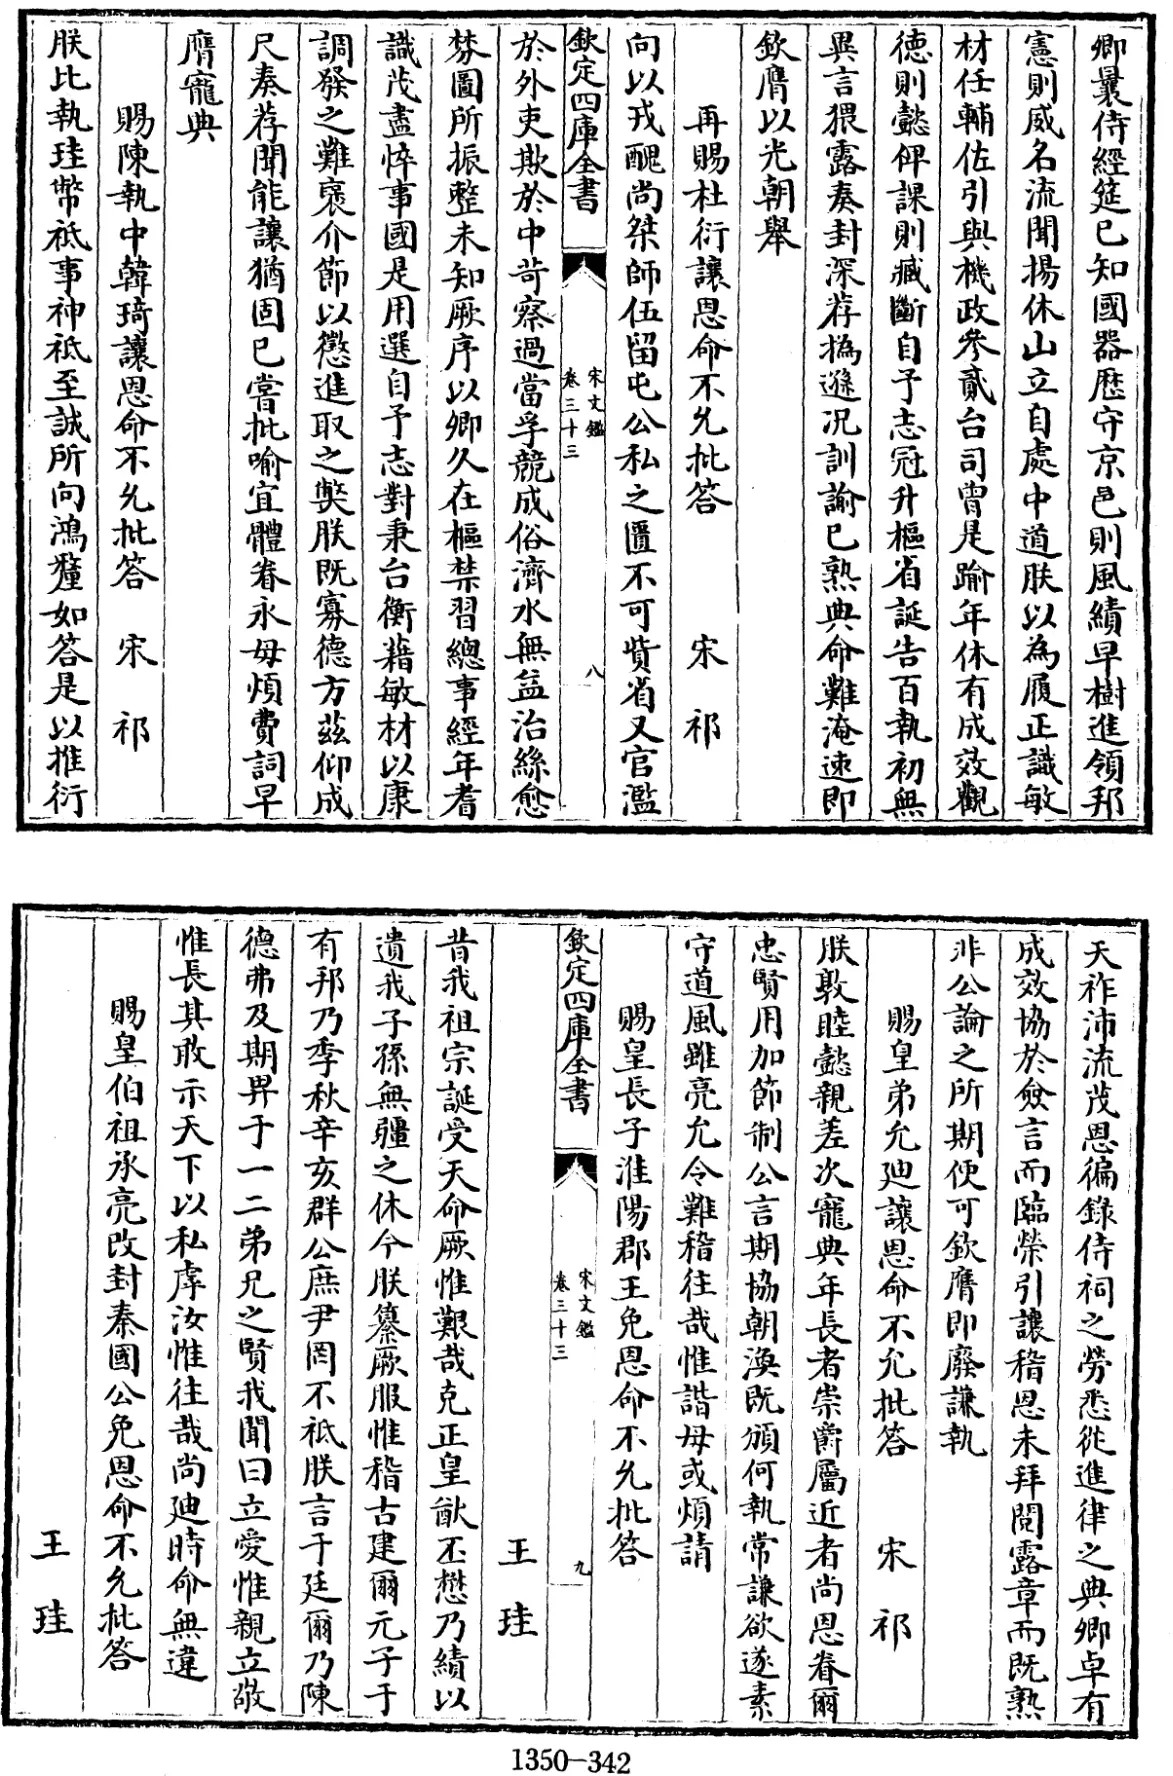 卿曩侍經筵已知國器歷守京邑則風績早樹進領邦
憲則威名流聞揚休山立自處中道朕以為履正識敏
材任輔佐引與機政參貳台司曾是踰年休有成效觀
德則懿俾課則臧斷自予志冠升樞省誕告百執初無
異言猥露奏封深荐撝遜況訓諭已熟典命難淹速即
欽膺以光朝舉
再賜杜衍讓恩命不允批答 宋祁
向以戎醜尚桀師伍留屯公私之匱不可貲省又官濫
欽定四庫全書 宋文鑑 卷三十三 八
於外吏欺於中苛察過當孚競成俗濟水無益治絲愈
棼圖所振整未知厥序以卿久在樞禁習總事經年耆
識茂盡悴事國是用選自予志對秉台衡藉敏材以康
調發之難褒介節以懲進取之弊朕既寡德方茲仰成
尺奏荐聞能讓猶固已嘗批喻宜體眷永毋煩費詞早
膺寵典
賜陳執中韓琦讓恩命不允批答 宋祁
朕比執珪幣祇事神祇至誠所向鴻釐如答是以推衍
天祚沛流茂恩徧錄侍祠之勞悉從進律之典卿卓有
成效協於僉言而臨榮引讓稽恩未拜閱露章而既熟
非公論之所期便可欽膺即廢謙執
賜皇弟允迪讓恩命不允批答 宋祁
朕敦睦懿親差次寵典年長者崇爵屬近者尚恩眷爾
忠賢用加節制公言期協朝渙既頒何執常謙欲遂素
守道風雖亮允令難稽往哉惟諧毋或煩請
賜皇長子淮陽郡王免恩命不允批答
欽定四庫全書 宋文鑑 卷三十三 九
王珪
昔我祖宗誕受天命厥惟艱哉克正皇猷丕懋乃績以
遺我子孫無疆之休今朕纂厥服惟稽古建爾元子于
有邦乃季秋辛亥群公庶尹罔不祗朕言于廷爾乃陳
德弗及期畀于一二弟兄之賢我聞曰立愛惟親立敬
惟長其敢示天下以私虖汝惟往哉尚迪時命無違
賜皇伯祖承亮改封秦國公免恩命不允批答
王珪
1350-342